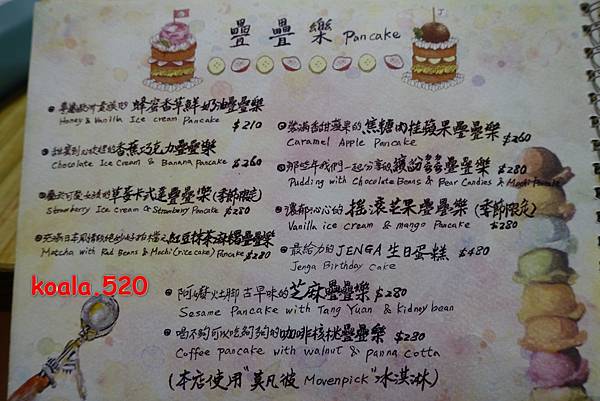 疊疊樂 Pancake
蜂蜜香草鮮奶油疊疊樂
Honey & Vanilla Ice cream Pancake $210
香蕉巧克力疊疊樂
Chocolate Ice Cream & Banana Pancake $260
草莓卡式達疊疊樂 (季節限定)
Strawberry Ice cream & Strawberry Pancake $280
紅豆抹茶麻糬疊疊樂
Matcha with Red Beans & Mochi (rice cake) Pancake $280
裝滿香甜蘋果的焦糖肉桂蘋果疊疊樂
Caramel Apple Pancake $260
那些年我們一起分享的繽紛多多疊疊樂 $280
Pudding with Chocolate Beans & Bear Candies & Mochi Pancake
濃郁沁心的搖滾芒果疊疊樂 (季節限定)
Vanilla ice cream & mango Pancake $280
最給力的JENGA生日蛋糕 $480
Jenga Birthday Cake
阿嬤灶腳古早味的芝麻疊疊樂 $280
Sesame Pancake with Tang Yuan & Kidney bean
喝不夠可以吃夠夠的咖啡核桃疊疊樂 $280
Coffee pancake with walnut & panna cotta
(本店使用"莫凡彼Movenpick"冰淇淋)
koala.520